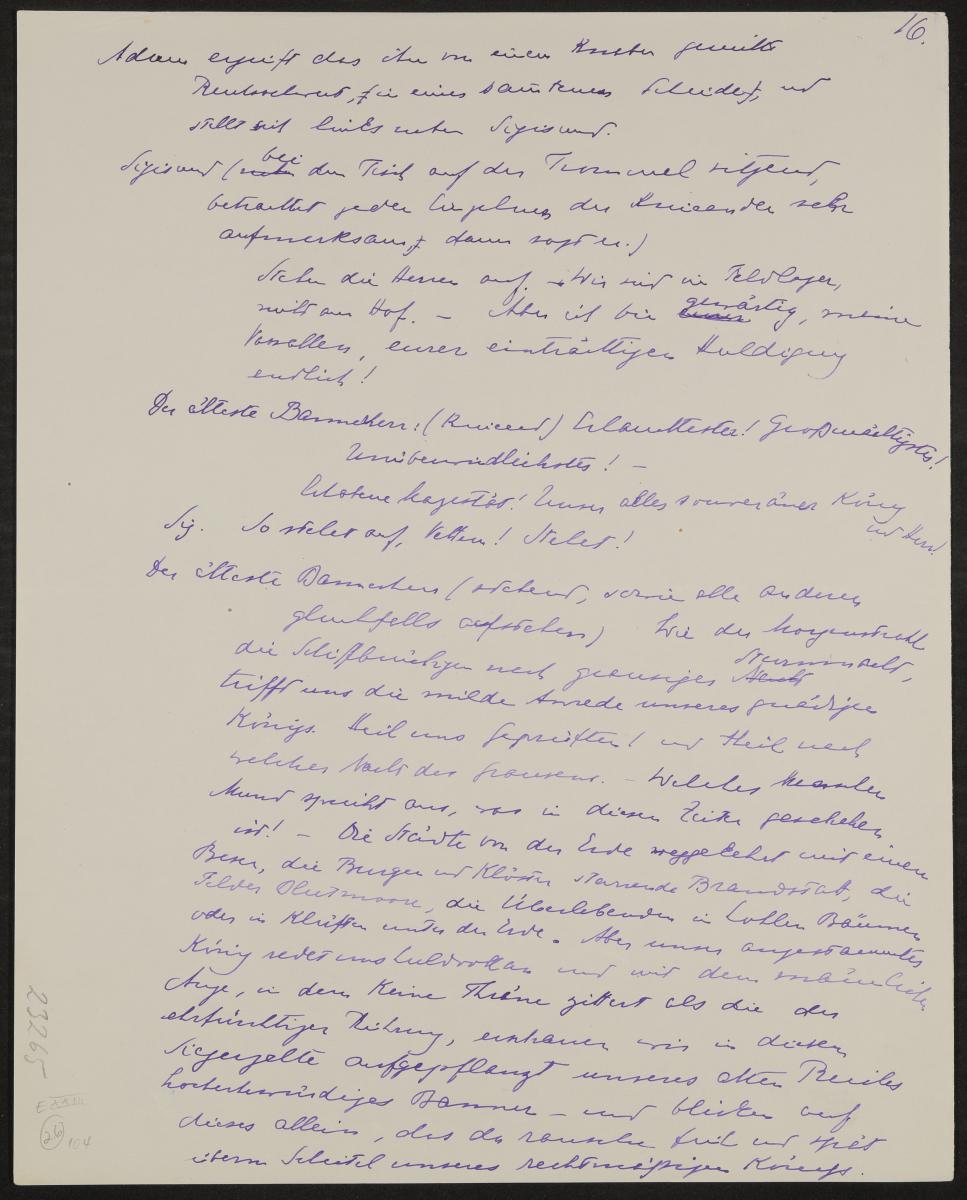 16.
Adam ergreift das ihm von einem Knaben gereichte
Reichsschwert, in eines samtenen Scheide, und
stellt sich links neben Sigismund.
Sigismund (neben bei dem Tisch auf der Trommel sitzend,
betrachtet jeden Einzelnen der Knieenden sehr
aufmerksam, dann sagt er.)
Stehen die Herren auf. – Wir sind im Feldlager,
nicht am Hof. – Aber ich bin gewärtig, meine
Vasallen, eurer einträchtigen Huldigung
endlich!
Der älteste Bannerherr: (knieend) Erlauchtester! Großmächtigster!
Unüberwindlichster! –
Erhabene Majestät! Unser alles souveräner König
und Herr!
Sig. So stehet auf, Vettern! Stehet!
Der älteste Bannerherr (stehend, sowie alle anderen
gleichfalls aufstehen) Wie der Morgenstrahl
die Schiffbrüchigen nach grausiger Nacht Sturmnacht,
trifft uns die milde Anrede unseres gnädigen
Königs. Heil uns Geprüften! und Heil nach
welcher Nacht des Grausens. – Welches Menschen
Mund spricht aus, was in diesen Zeiten geschehen
ist! – Die Städte von der Erde weggekehrt mit einem
Besen, die Burgen und Klöster starrende Brandstatt, die
Felder Blutmoore, die Überlebenden in hohlen Bäumen
oder in Klüften unter der Erde. Aber unser angestammter
König redet uns huldvoll an und mit dem männlichen
Auge, in dem keine Thräne zittert als die der
ehrfürchtigen Rührung, erschauen wir in diesem
Siegerzelte aufgepflanzt unseres alten Reiches
hochehrwürdiges Banner – und blicken auf
dieses allein, das da rausche früh und spät
überm Scheitel unseres rechtmäßigen Königs.
23265
E
26
104